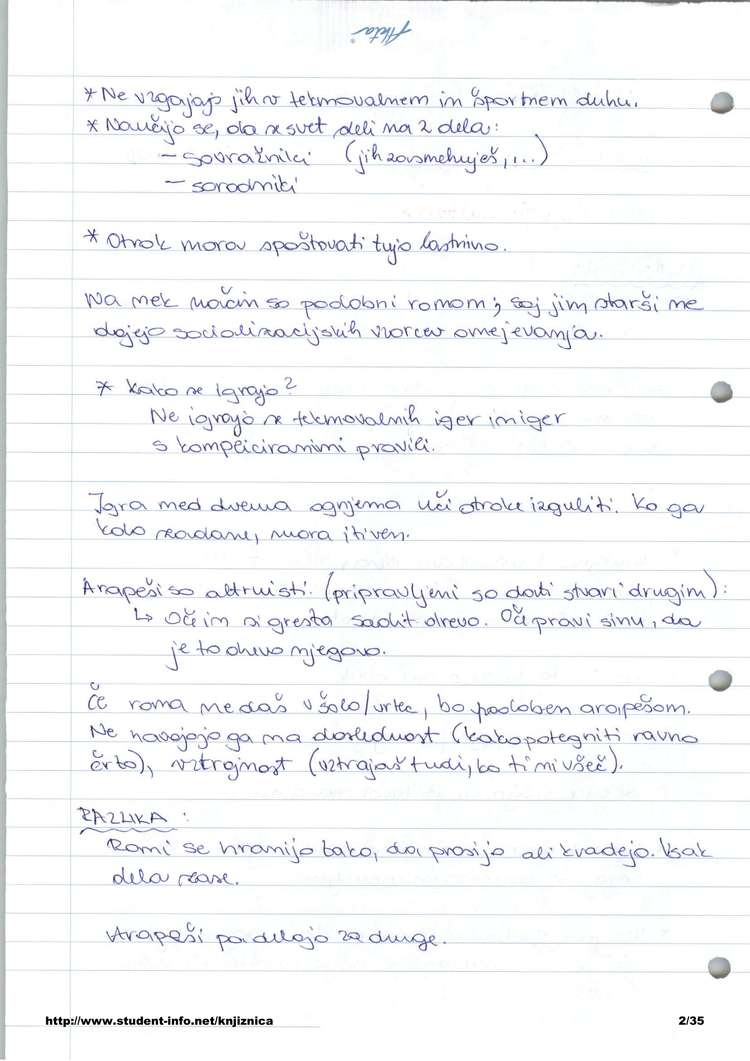 * Ne vzgajajo jih v tekmovalnem in športnem duhu.
* Naučijo se, da se svet deli na 2 dela:
– sovražniki (jih zasmehuješ,...)
– sorodniki
* Otrok mora spoštovati tujo lastnino.
Na nek način so podobni romom; saj jim starši ne
dajejo socializacijskih vzorcev omejevanja.
* Kako se igrajo?
Ne igrajo se tekmovalnih iger in iger
s kompliciranimi pravili.
Igra med dvema ognjema uči otroke izgubiti. Ko ga
kdo zadane, mora iti ven.
Arapeši so altruisti. (pripravljeni so dati stvari drugim):
↳ Oče in sin gresta sadit drevo. Oče pravi sinu, da
je to drevo njegovo.
Če roma ne daš v šolo/vrtec, bo podoben arapešom.
Ne navajajo ga na doslednost (kako potegniti ravno
črto), vztrajnost (vztrajaš tudi, ko ti ni všeč).
RAZLIKA:
Romi se hranijo tako, da prosijo ali kradejo. Vsak
dela zase.
Arapeši pa delajo za druge.
http://www.student-info.net/knjiznica 2/35